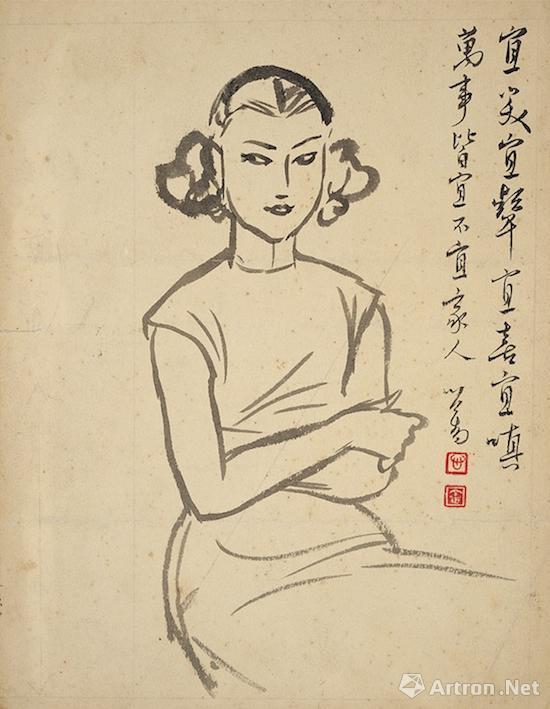 宜笑宜顰宜喜宜嗔
萬事皆宜不宜家人
Artron.Net